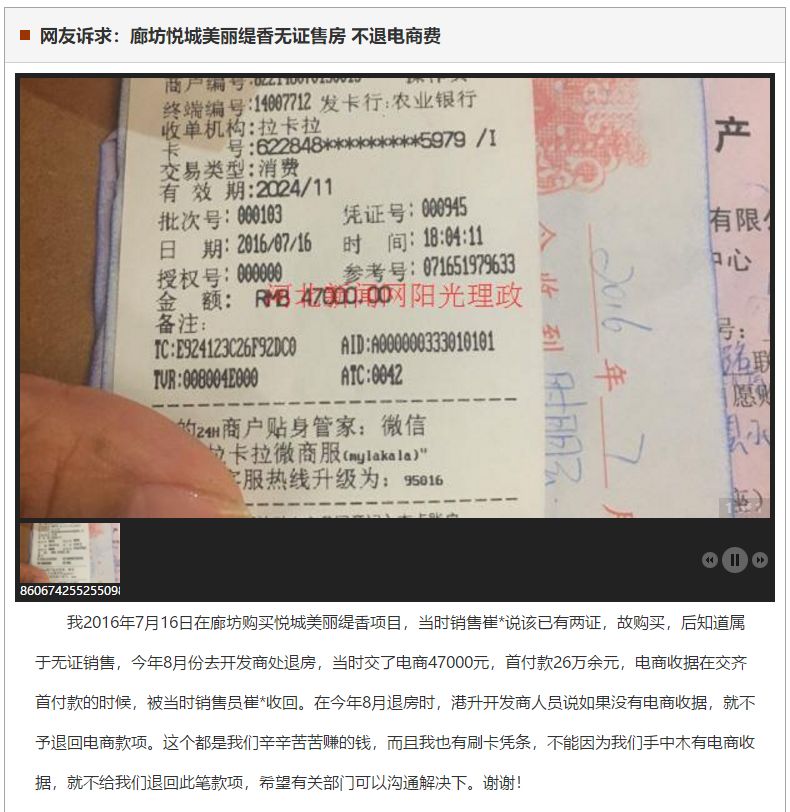 网友诉求：廊坊悦城美丽缇香无证售房 不退电商费
终端编号:14007712 发卡行:农业银行
收单机构:拉卡拉
卡 号:622848*********5979 /I
交易类型:消费
有 效 期:2024/11
批次号:000103 凭证号:000945
日 期:2016/07/16 时 间:18:04:11
授权号:000000 参考号:071651979633
金 额: RMB 47000.00
河北新闻网阳光理政
备注:
TC:E924123C26F92DC0 AID:A000000333010101
TVR:008004E000 ATC:0042
的24H商户贴身管家：微信
拉卡拉微商服(mylakala)"
客服热线升级为：95016
今收到
2016年7月
产
有限公
中心
号：
联
愿购
860674255255098
我2016年7月16日在廊坊购买悦城美丽缇香项目，当时销售崔*说该已有两证，故购买，后知道属
于无证销售，今年8月份去开发商处退房，当时交了电商47000元，首付款26万余元，电商收据在交齐
首付款的时候，被当时销售员崔*收回。在今年8月退房时，港升开发商人员说如果没有电商收据，就不
予退回电商款项。这个都是我们辛辛苦苦赚的钱，而且我也有刷卡凭条，不能因为我们手中木有电商收
据，就不给我们退回此笔款项，希望有关部门可以沟通解决下。谢谢！